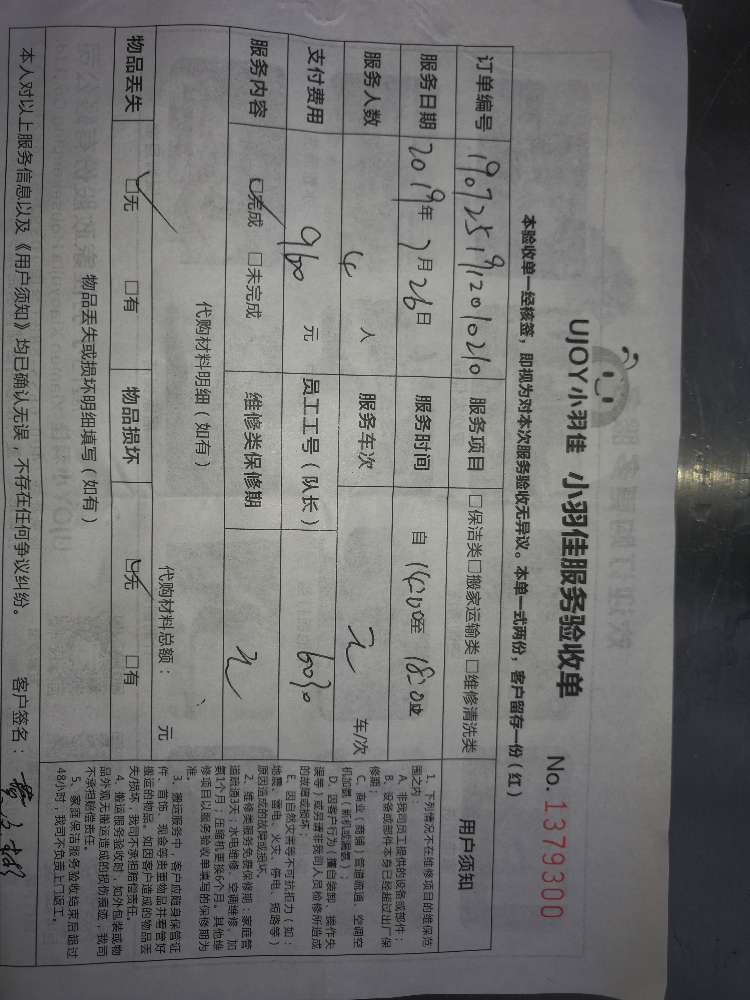 UJOY小羽佳 小羽佳服务验收单 No. 1379300
本验收单一经核签，即视为对本次服务验收无异议。本单一式两份，客户留存一份（红）
订单编号 服务项目 □保洁类□搬家运输类□维修清洗类
服务日期 2019年7月26日 服务时间 自 至
服务人数 4 人 服务车次 车/次
支付费用 960 元 员工工号（队长）
服务内容 □完成 □未完成 维修类保修期 无
代购材料明细（如有）
代购材料总额： 元
物品丢失 □无 □有 物品损坏 □无 □有
物品丢失或损坏明细填写（如有）
用户须知
1、下列情况不在维修项目的维保范
围之内：
A、非我司员工提供的设备或部件；
B、设备或部件本身已经超过出厂保
修期；
C、商业（商铺）管道疏通、空调空
机加氟（新机或漏氟）；
D、因客户行为（擅自装卸、操作失
误等）或另请非我司人员检修所造成
的故障或损坏；
E、因自然灾害等不可抗拒力（如：
地震、雷电、火灾、停电、短路等）
原因造成的故障或损坏。
2、维修类服务免费保修期：家庭管
道疏通3天；水电维修、空调维修、加
氟1个月；压缩机更换6个月。其他维
修项目以服务验收单填写的保修期为
准。
3、搬运服务中，客户应随身保管证
件、首饰、现金等贵重物品并看管好
搬运的物品。如因客户造成的物品丢
失/损坏，我司不承担赔偿责任。
4、搬运服务验收时，如外包装或物
品外观无搬运造成的损伤痕迹，我司
不承担赔偿责任。
5、家庭保洁服务验收结束后超过
48小时，我司不负责上门返工。
本人对以上服务信息以及《用户须知》均已确认无误，不存在任何争议纠纷。 客户签名：